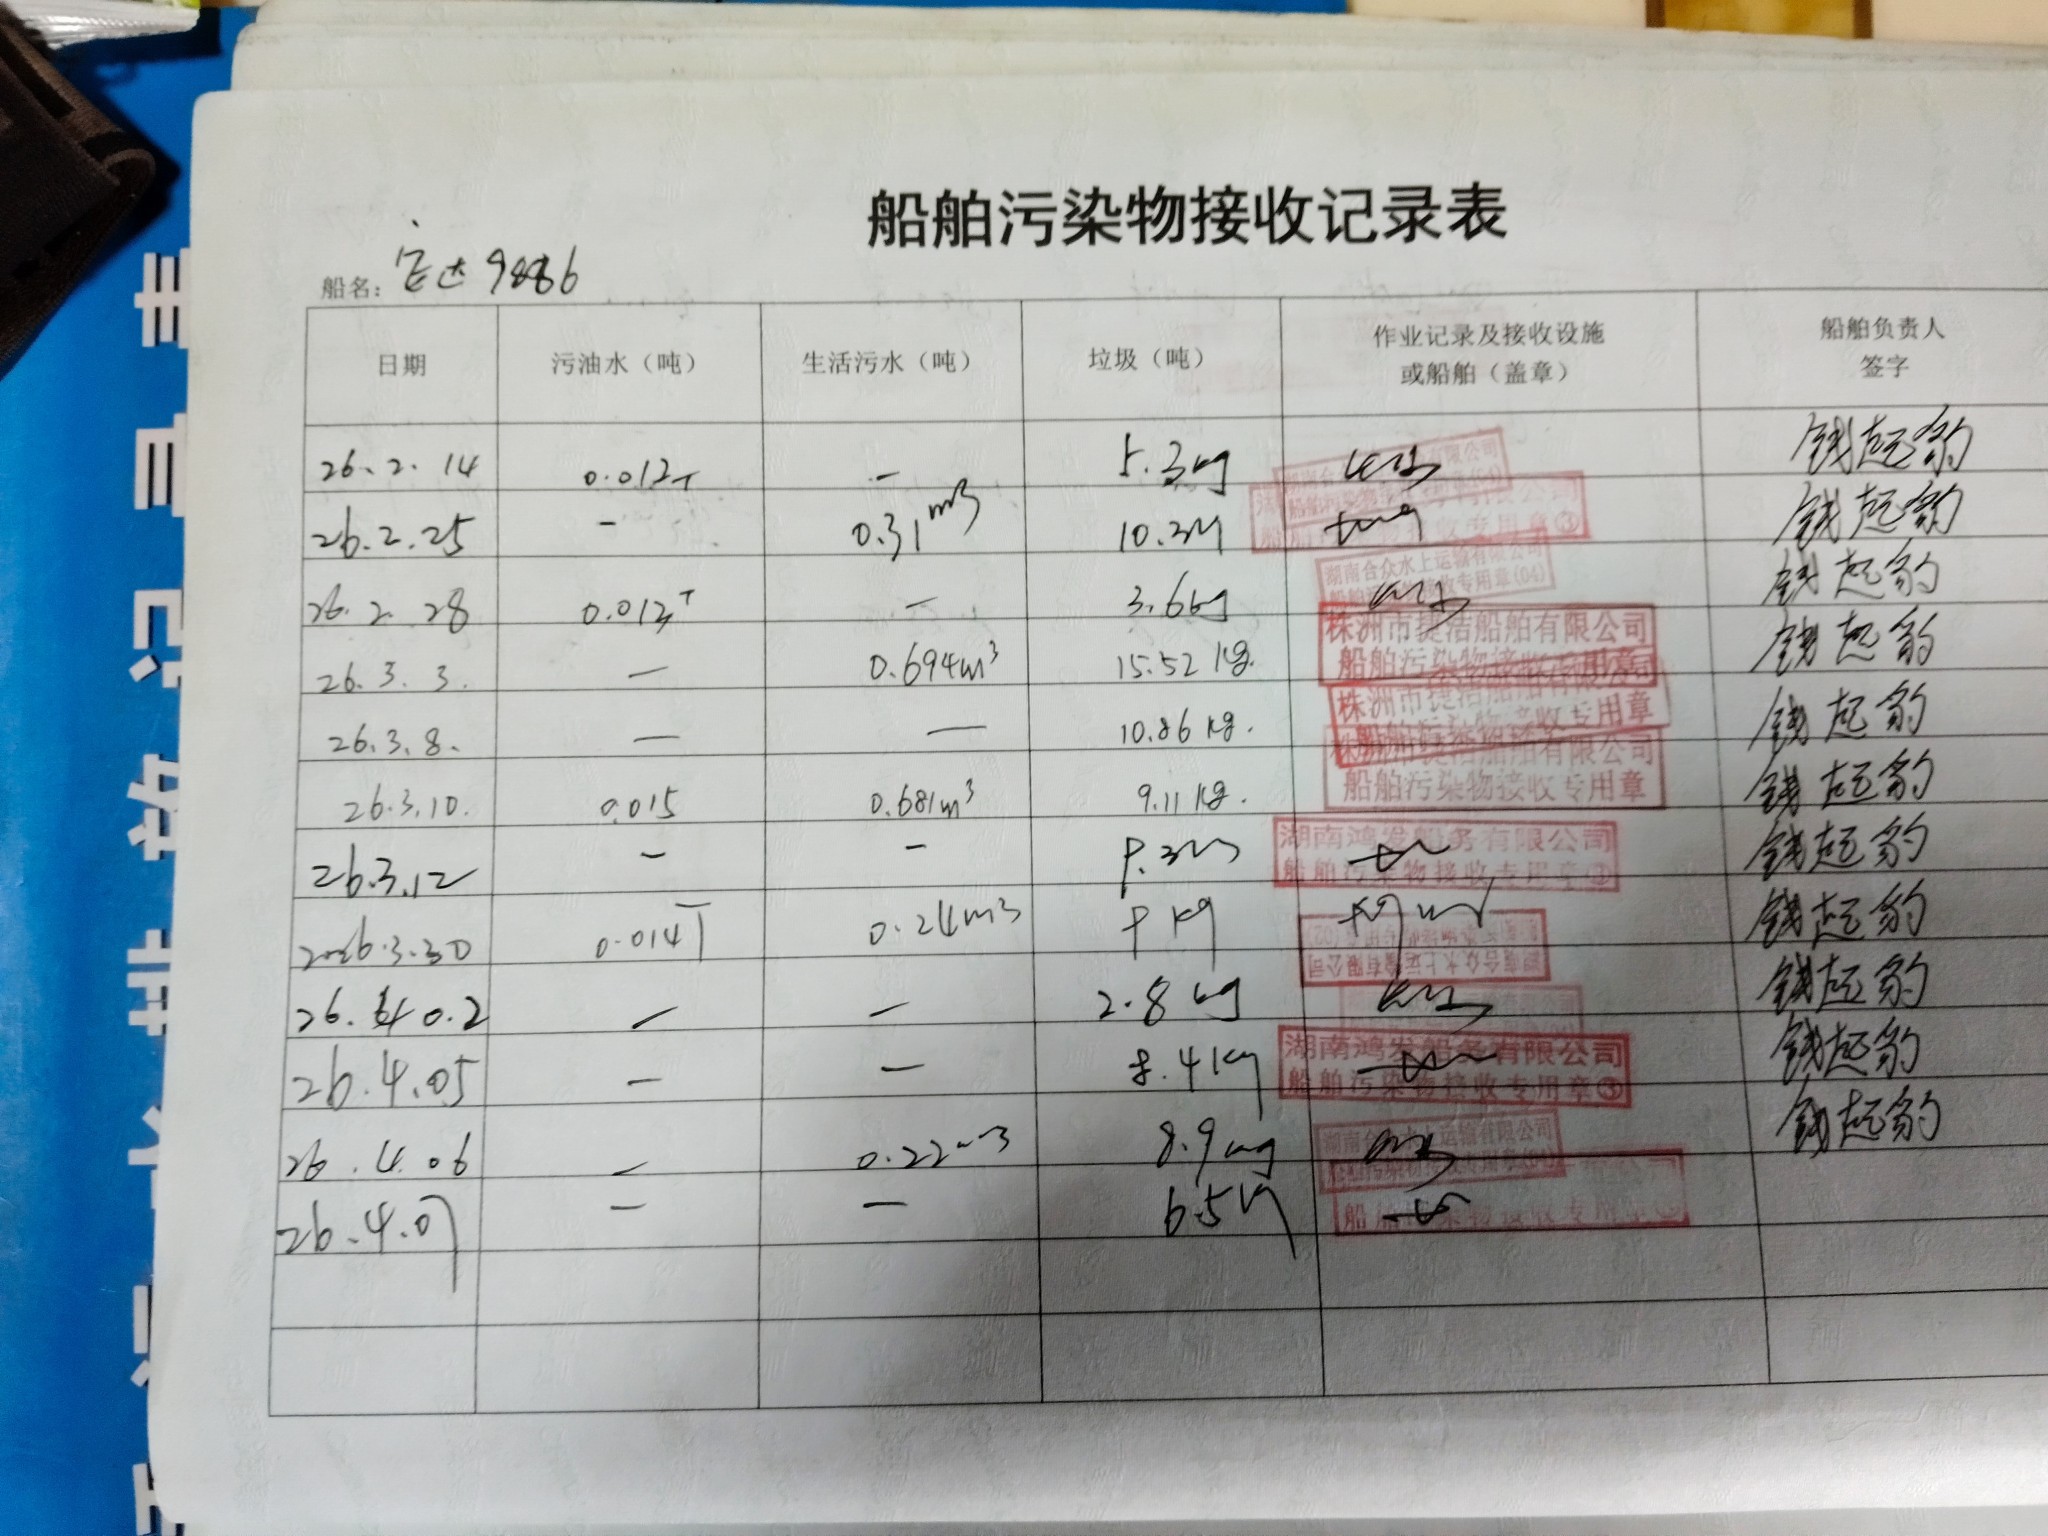 船舶污染物接收记录表
船名: 宏达9886
日期 污油水（吨） 生活污水（吨） 垃圾（吨） 作业记录及接收设施或船舶（盖章） 船舶负责人签字
26.2.14 0.012T — 5.3kg 钱起豹
26.2.25 — 0.31m3 10.3kg 船舶污染物接收专用章③ 钱起豹
26.2.28 0.013T — 3.6kg 湖南合众水上运输有限公司 船舶污染物接收专用章(04) 钱起豹
26.3.3. — 0.694m³ 15.52kg. 株洲市捷洁船舶有限公司 船舶污染物接收专用章 钱起豹
26.3.8. — — 10.86kg. 株洲市捷洁船舶有限公司 船舶污染物接收专用章 钱起豹
26.3.10. 0.015 0.681m³ 9.11kg. 株洲市捷洁船舶有限公司 船舶污染物接收专用章 钱起豹
26.3.12 — — 湖南鸿发船务有限公司 船舶污染物接收专用章③ 钱起豹
2026.3.30 0.014T 0.24m3 湖南合众水上运输有限公司 钱起豹
26.4 0.2 — — 2.8kg 钱起豹
26.4.05 — — 8.4Kg 湖南鸿发船务有限公司 船舶污染物接收专用章③ 钱起豹
26.4.06 — 0.22m3 8.9kg 湖南合众水上运输有限公司 船舶污染物接收专用章(04) 钱起豹
26.4.07 — — 6.5kg 船舶污染物接收专用章